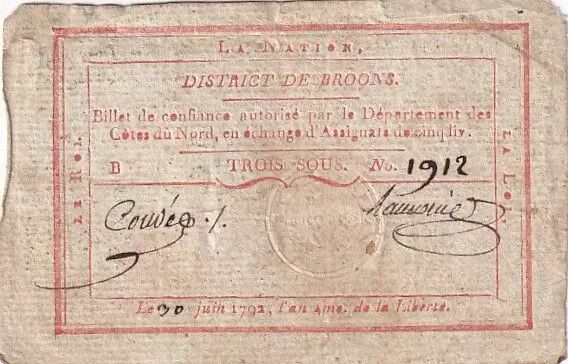 LA NATION,
DISTRICT DE BROONS.
Billet de confiance autorisé par le Département des
Côtes du Nord, en échange d'Assignats de cinq liv.
B TROIS SOUS. No. 1912
LE ROI.
LA LOI.
Le 30 juin 1792, l'an 4me. de la Liberté.